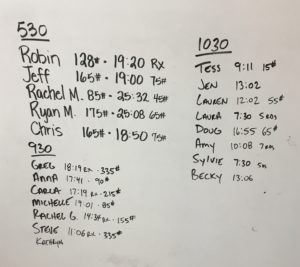 530
Robin 128# • 19:20 RX
Jeff 165# • 19:00 75#
Rachel M. 85# • 25:32 45#
Ryan M. 175# • 25:08 65#
Chris 165# • 18:50 75#
930
GREG 18:19 RX • 335#
ANNA 17:41 • 90#
CARLA 17:19 RX • 215#
MICHELLE 19:01 • 85#
RACHEL G. 14:34 RX • 155#
STEVE 11:06 RX • 335#
KATHRYN
1030
TESS 9:11 15#
JEN 13:02
LAUREN 12:02 55#
LAURA 7:30 5 RDS
DOUG 16:55 65#
AMY 10:08 7RDS
SYLVIE 7:30
BECKY 13:06